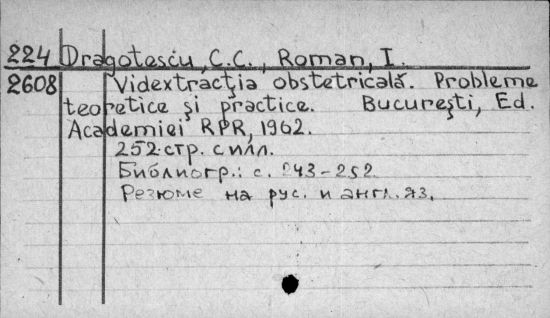 224 Dragotescu, C.C., Roman, I.
2608 Vidextracţia obstetricală. Probleme
teoretice şi practice. Bucureşti, Ed.
Academiei RPR, 1962.
252 стр. с илл.
Библиогр.: с. 243-252
Резюме на рус. и англ. яз.